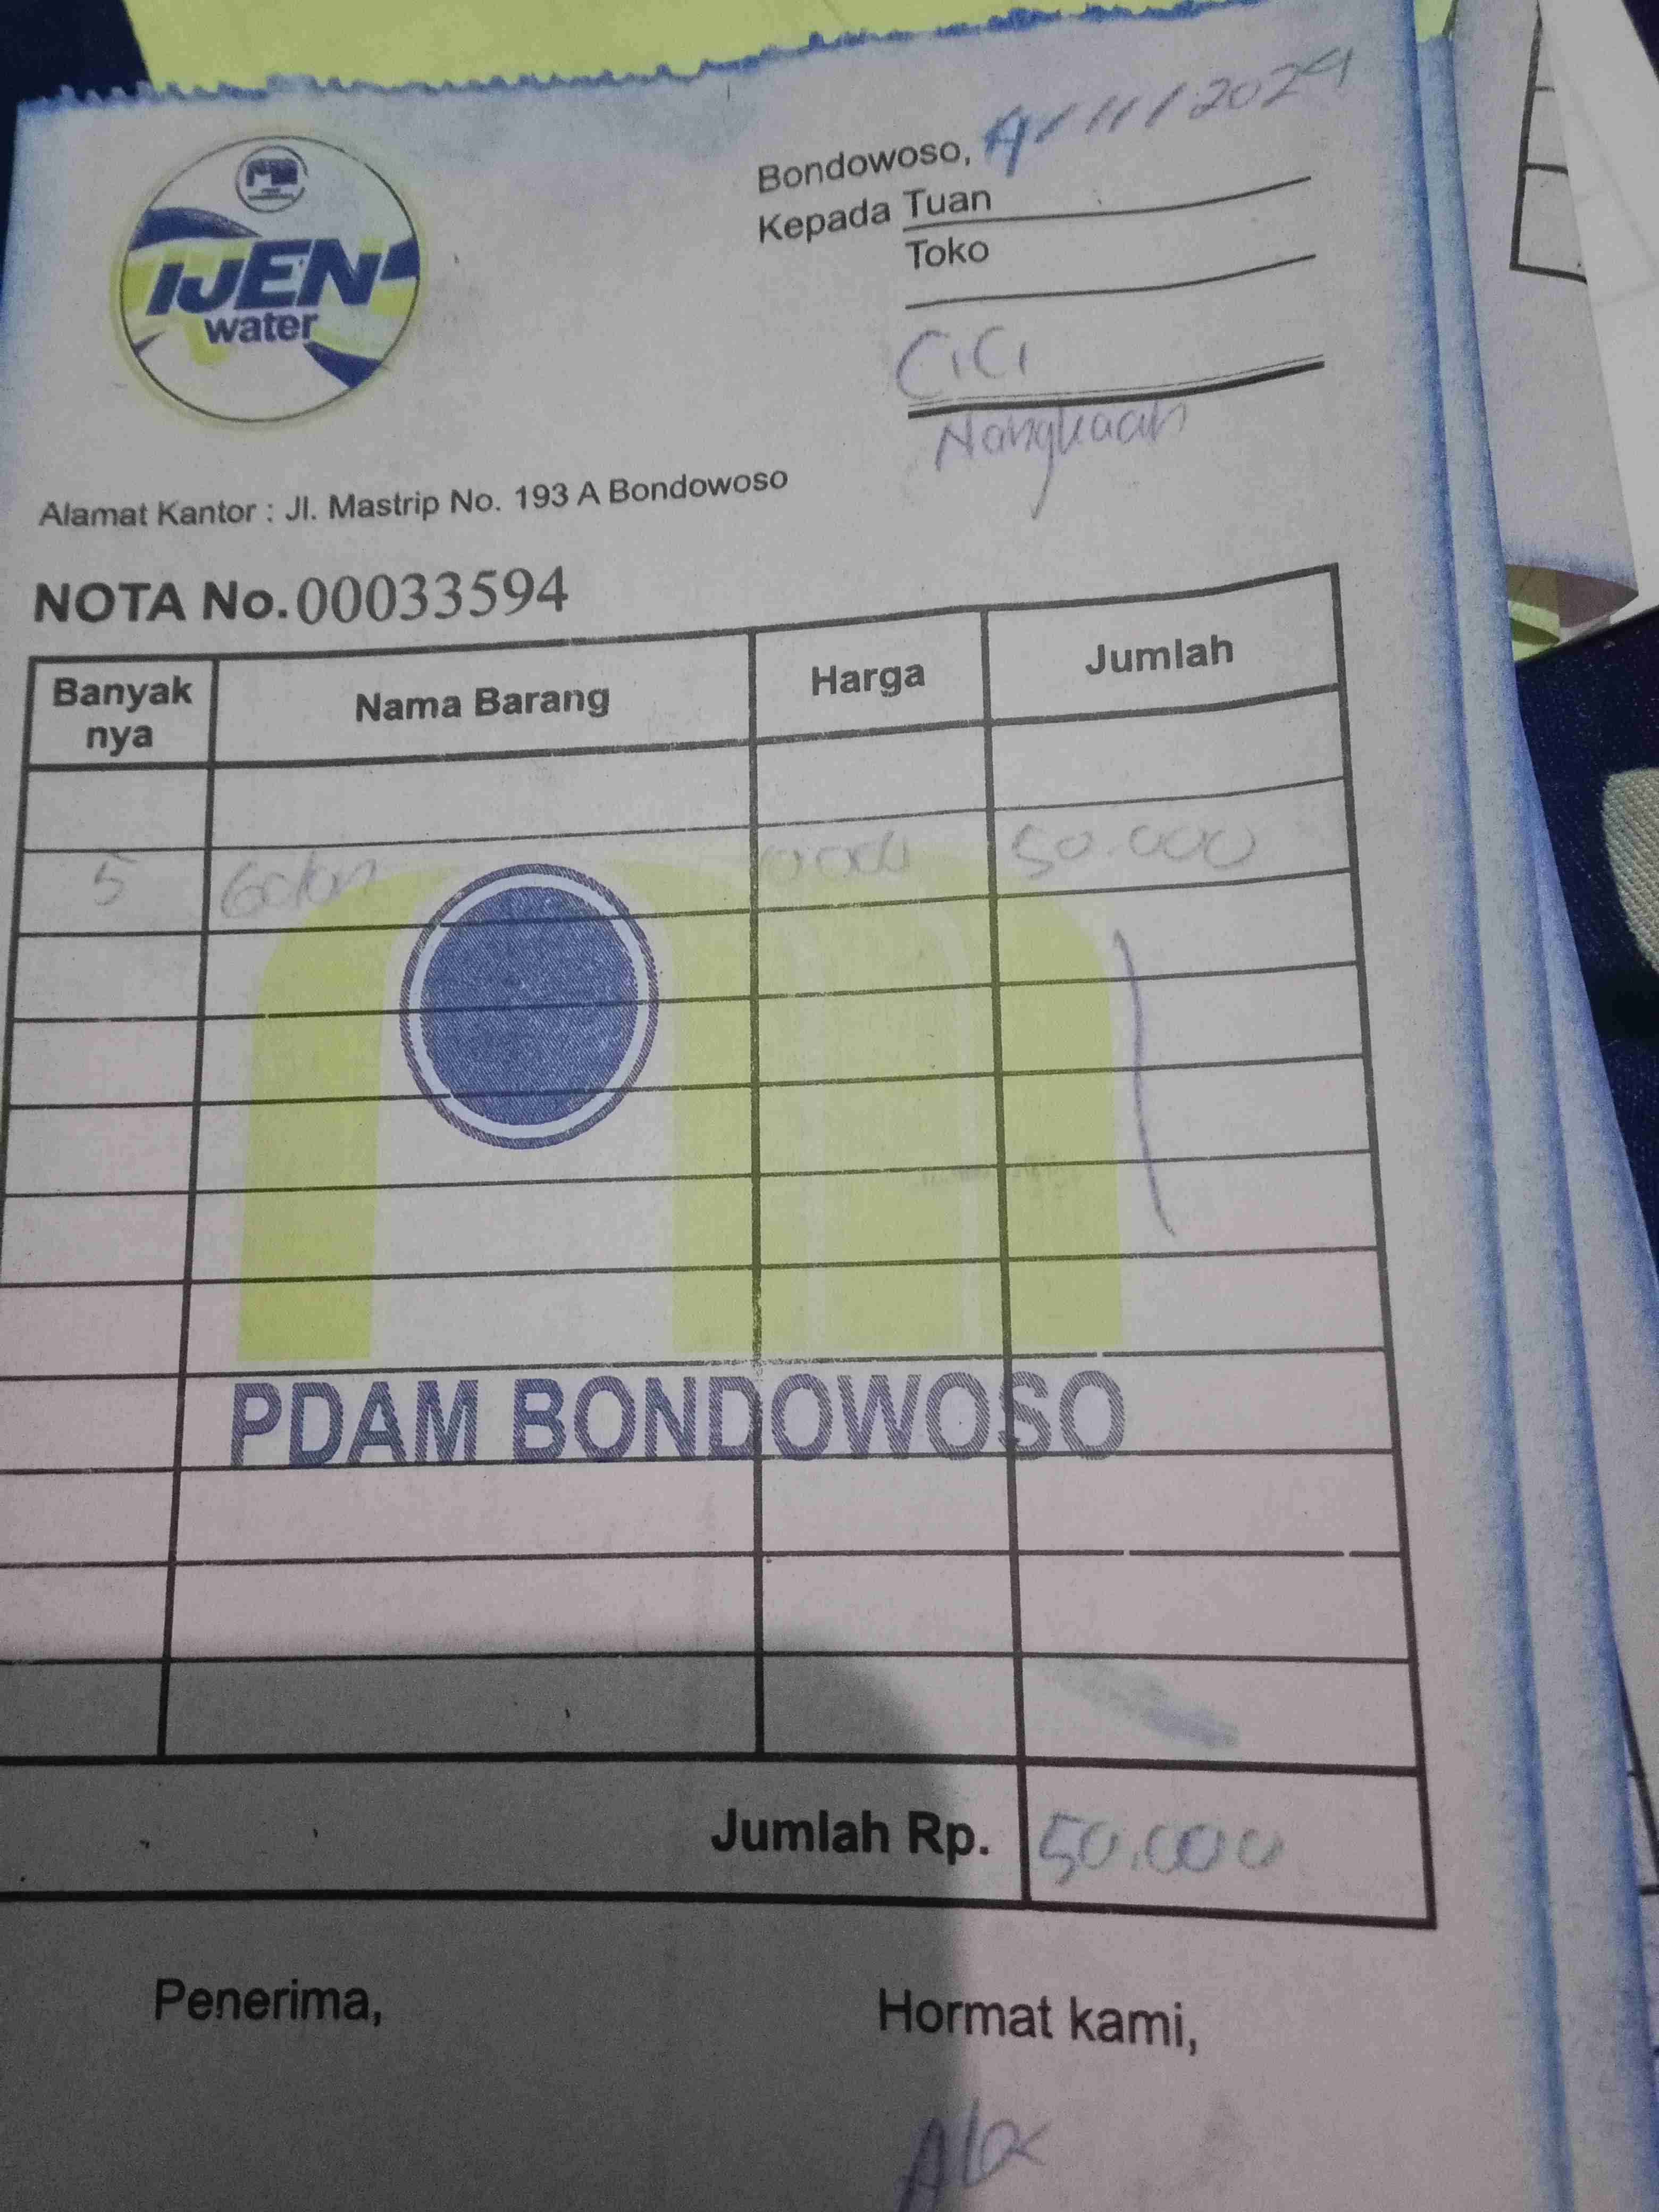 IJEN
water
Bondowoso, 4/11/2024
Kepada Tuan
Toko
CiCi
Nangkaan
Alamat Kantor : Jl. Mastrip No. 193 A Bondowoso
NOTA No. 00033594
Banyak nya Nama Barang Harga Jumlah
5 Galon 50.000
PDAM BONDOWOSO
Jumlah Rp. 50.000
Penerima, Hormat kami,